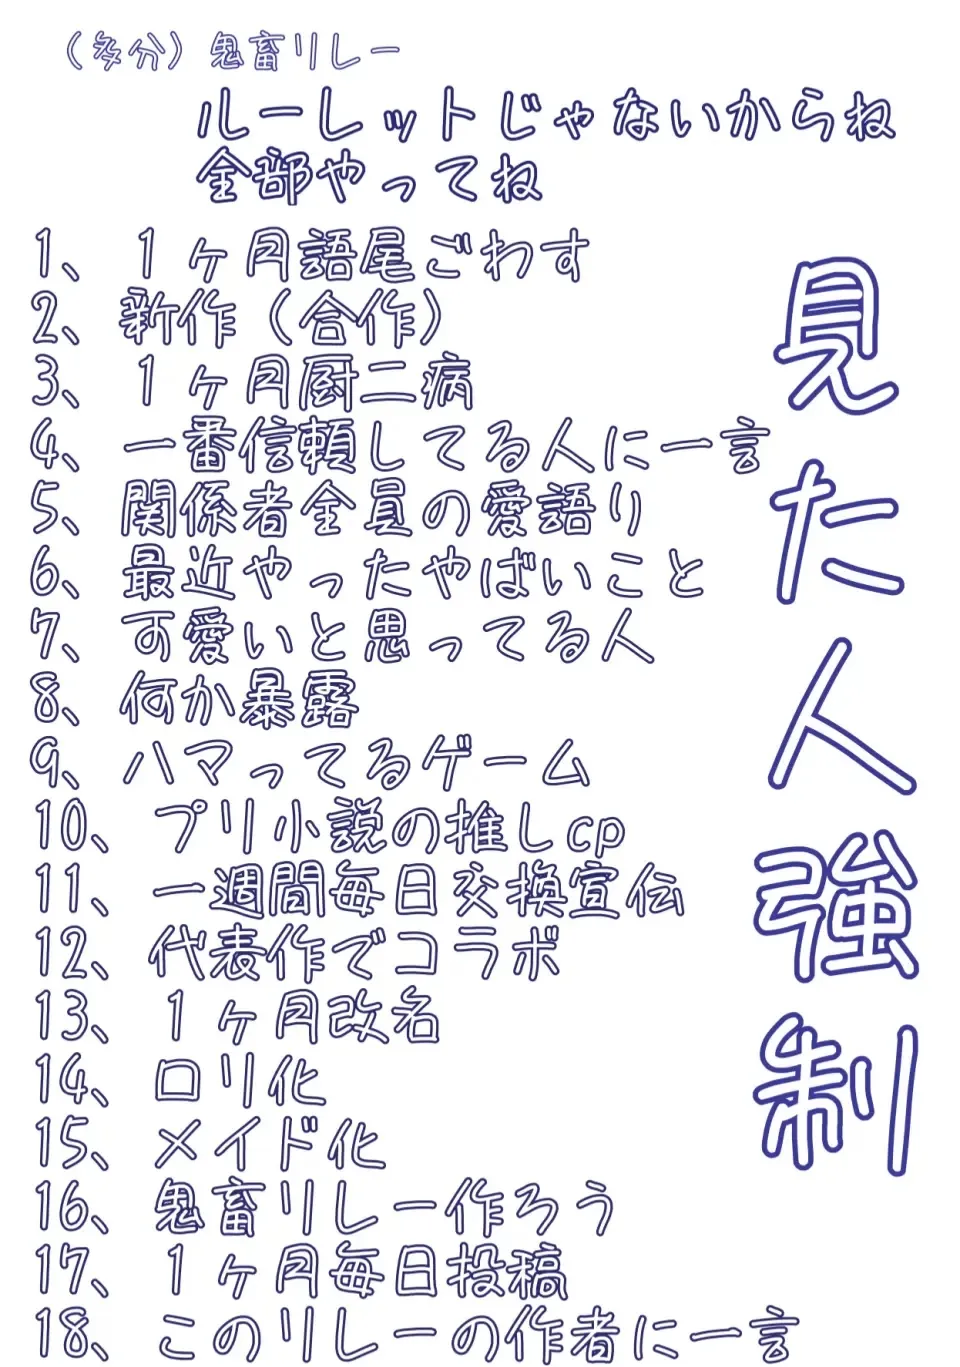 （多分）鬼畜リレー
ルーレットじゃないからね
全部やってね
1、1ヶ月語尾ごわす
2、新作（合作）
3、1ヶ月厨二病
4、一番信頼してる人に一言
5、関係者全員の愛語り
6、最近やったやばいこと
7、可愛いと思ってる人
8、何か暴露
9、ハマってるゲーム
10、プリ小説の推しcp
11、一週間毎日交換宣伝
12、代表作でコラボ
13、1ヶ月改名
14、ロリ化
15、メイド化
16、鬼畜リレー作ろう
17、1ヶ月毎日投稿
18、このリレーの作者に一言
見た人強制